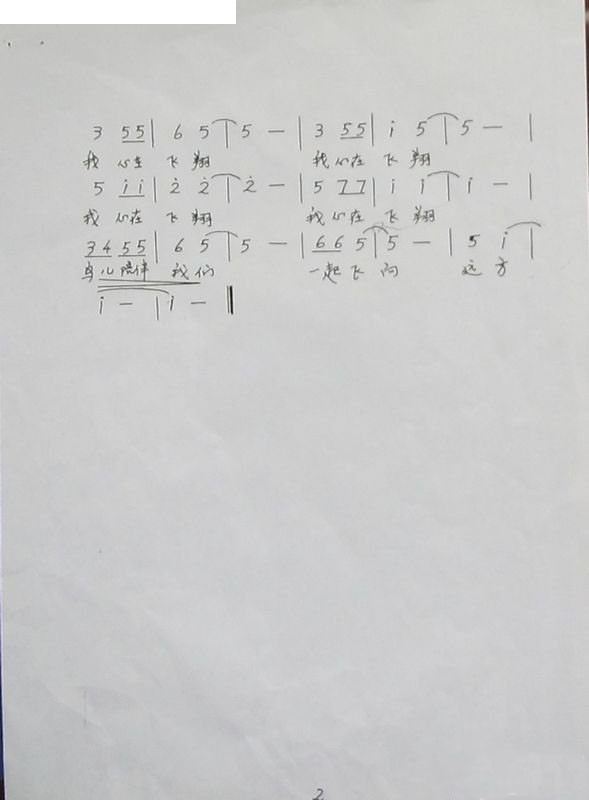 3 55 | 6 5 | 5 — | 3 55 | i 5 | 5 — |
我 心在 飞 翔 我 心在 飞 翔
5 i i | 2̇ 2̇ | 2̇ — | 5 77 | i i | i — |
我 心在 飞 翔 我 心在 飞 翔
34 55 | 6 5 | 5 — | 66 5 | 5 — | 5 i |
鸟儿 陪伴 我们 一起飞向 远方
i — | i — ‖
2